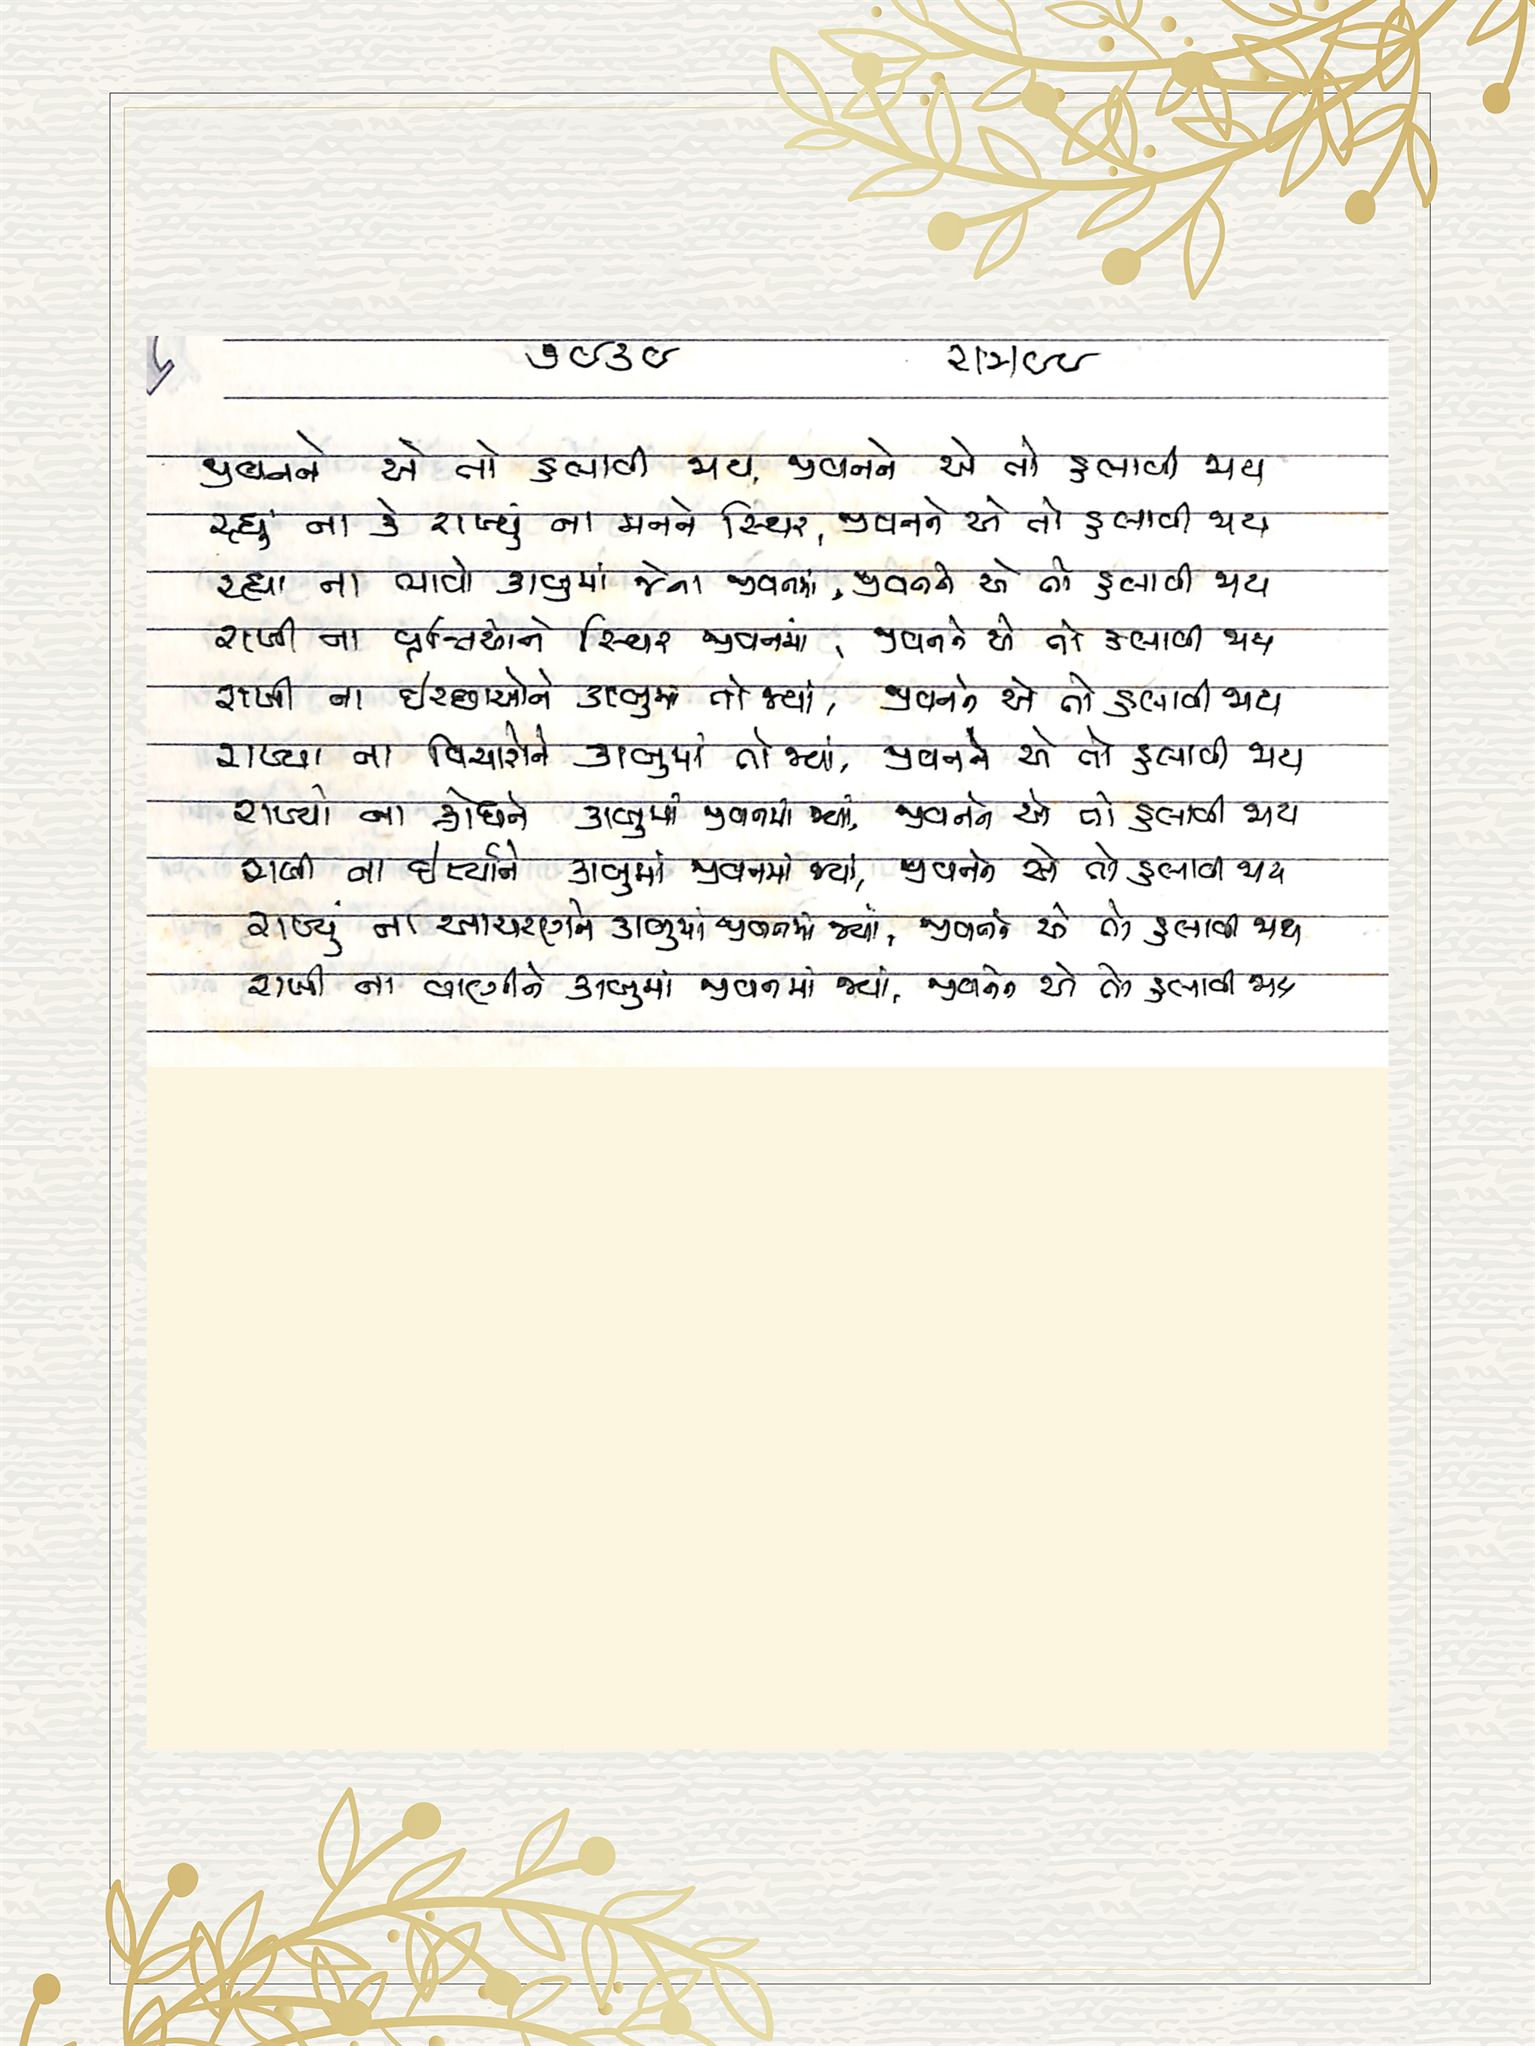 ૭૯૩૯ ૨ામ૯૯
જીવનને એ તો હલાવી જાય, જીવનને એ તો હલાવી જાય
રહ્યું ના કે રાખ્યું ના મનને સ્થિર, જીવનને એ તો હલાવી જાય
રહ્યા ના ભાવો કાબૂમાં જેના જીવનમાં, જીવનને એ તો હલાવી જાય
રાખી ના વૃત્તિઓને સ્થિર જીવનમાં, જીવનને એ તો હલાવી જાય
રાખી ના ઇચ્છાઓને કાબુમાં તો જ્યાં, જીવનને એ તો હલાવી જાય
રાખ્યા ના વિચારોને કાબુમાં તો જ્યાં, જીવનને એ તો હલાવી જાય
રાખ્યો ના ક્રોધને કાબુમાં જીવનમાં જ્યાં, જીવનને એ તો હલાવી જાય
રાખી ના ઈર્ષ્યાને કાબુમાં જીવનમાં જ્યાં, જીવનને એ તો હલાવી જાય
રાખ્યું ના આચરણને કાબુમાં જીવનમાં જ્યાં, જીવનને એ તો હલાવી જાય
રાખી ના વાણીને કાબુમાં જીવનમાં જ્યાં, જીવનને એ તો હલાવી જાય